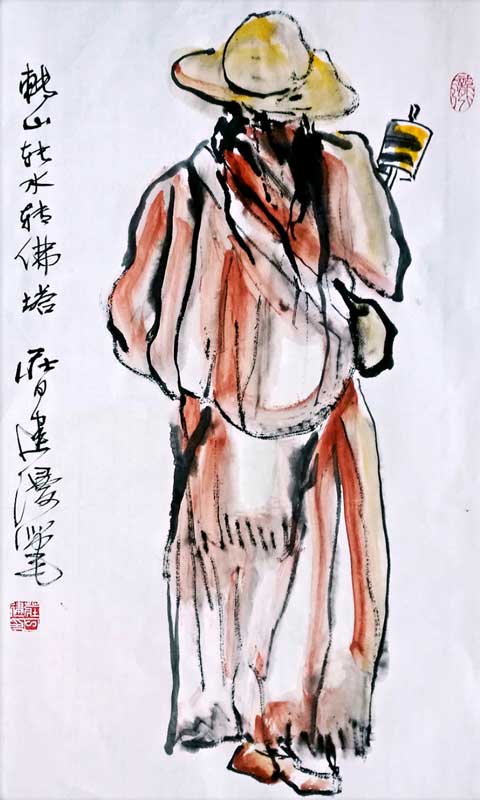 转山转水转佛塔 莊日建漫笔